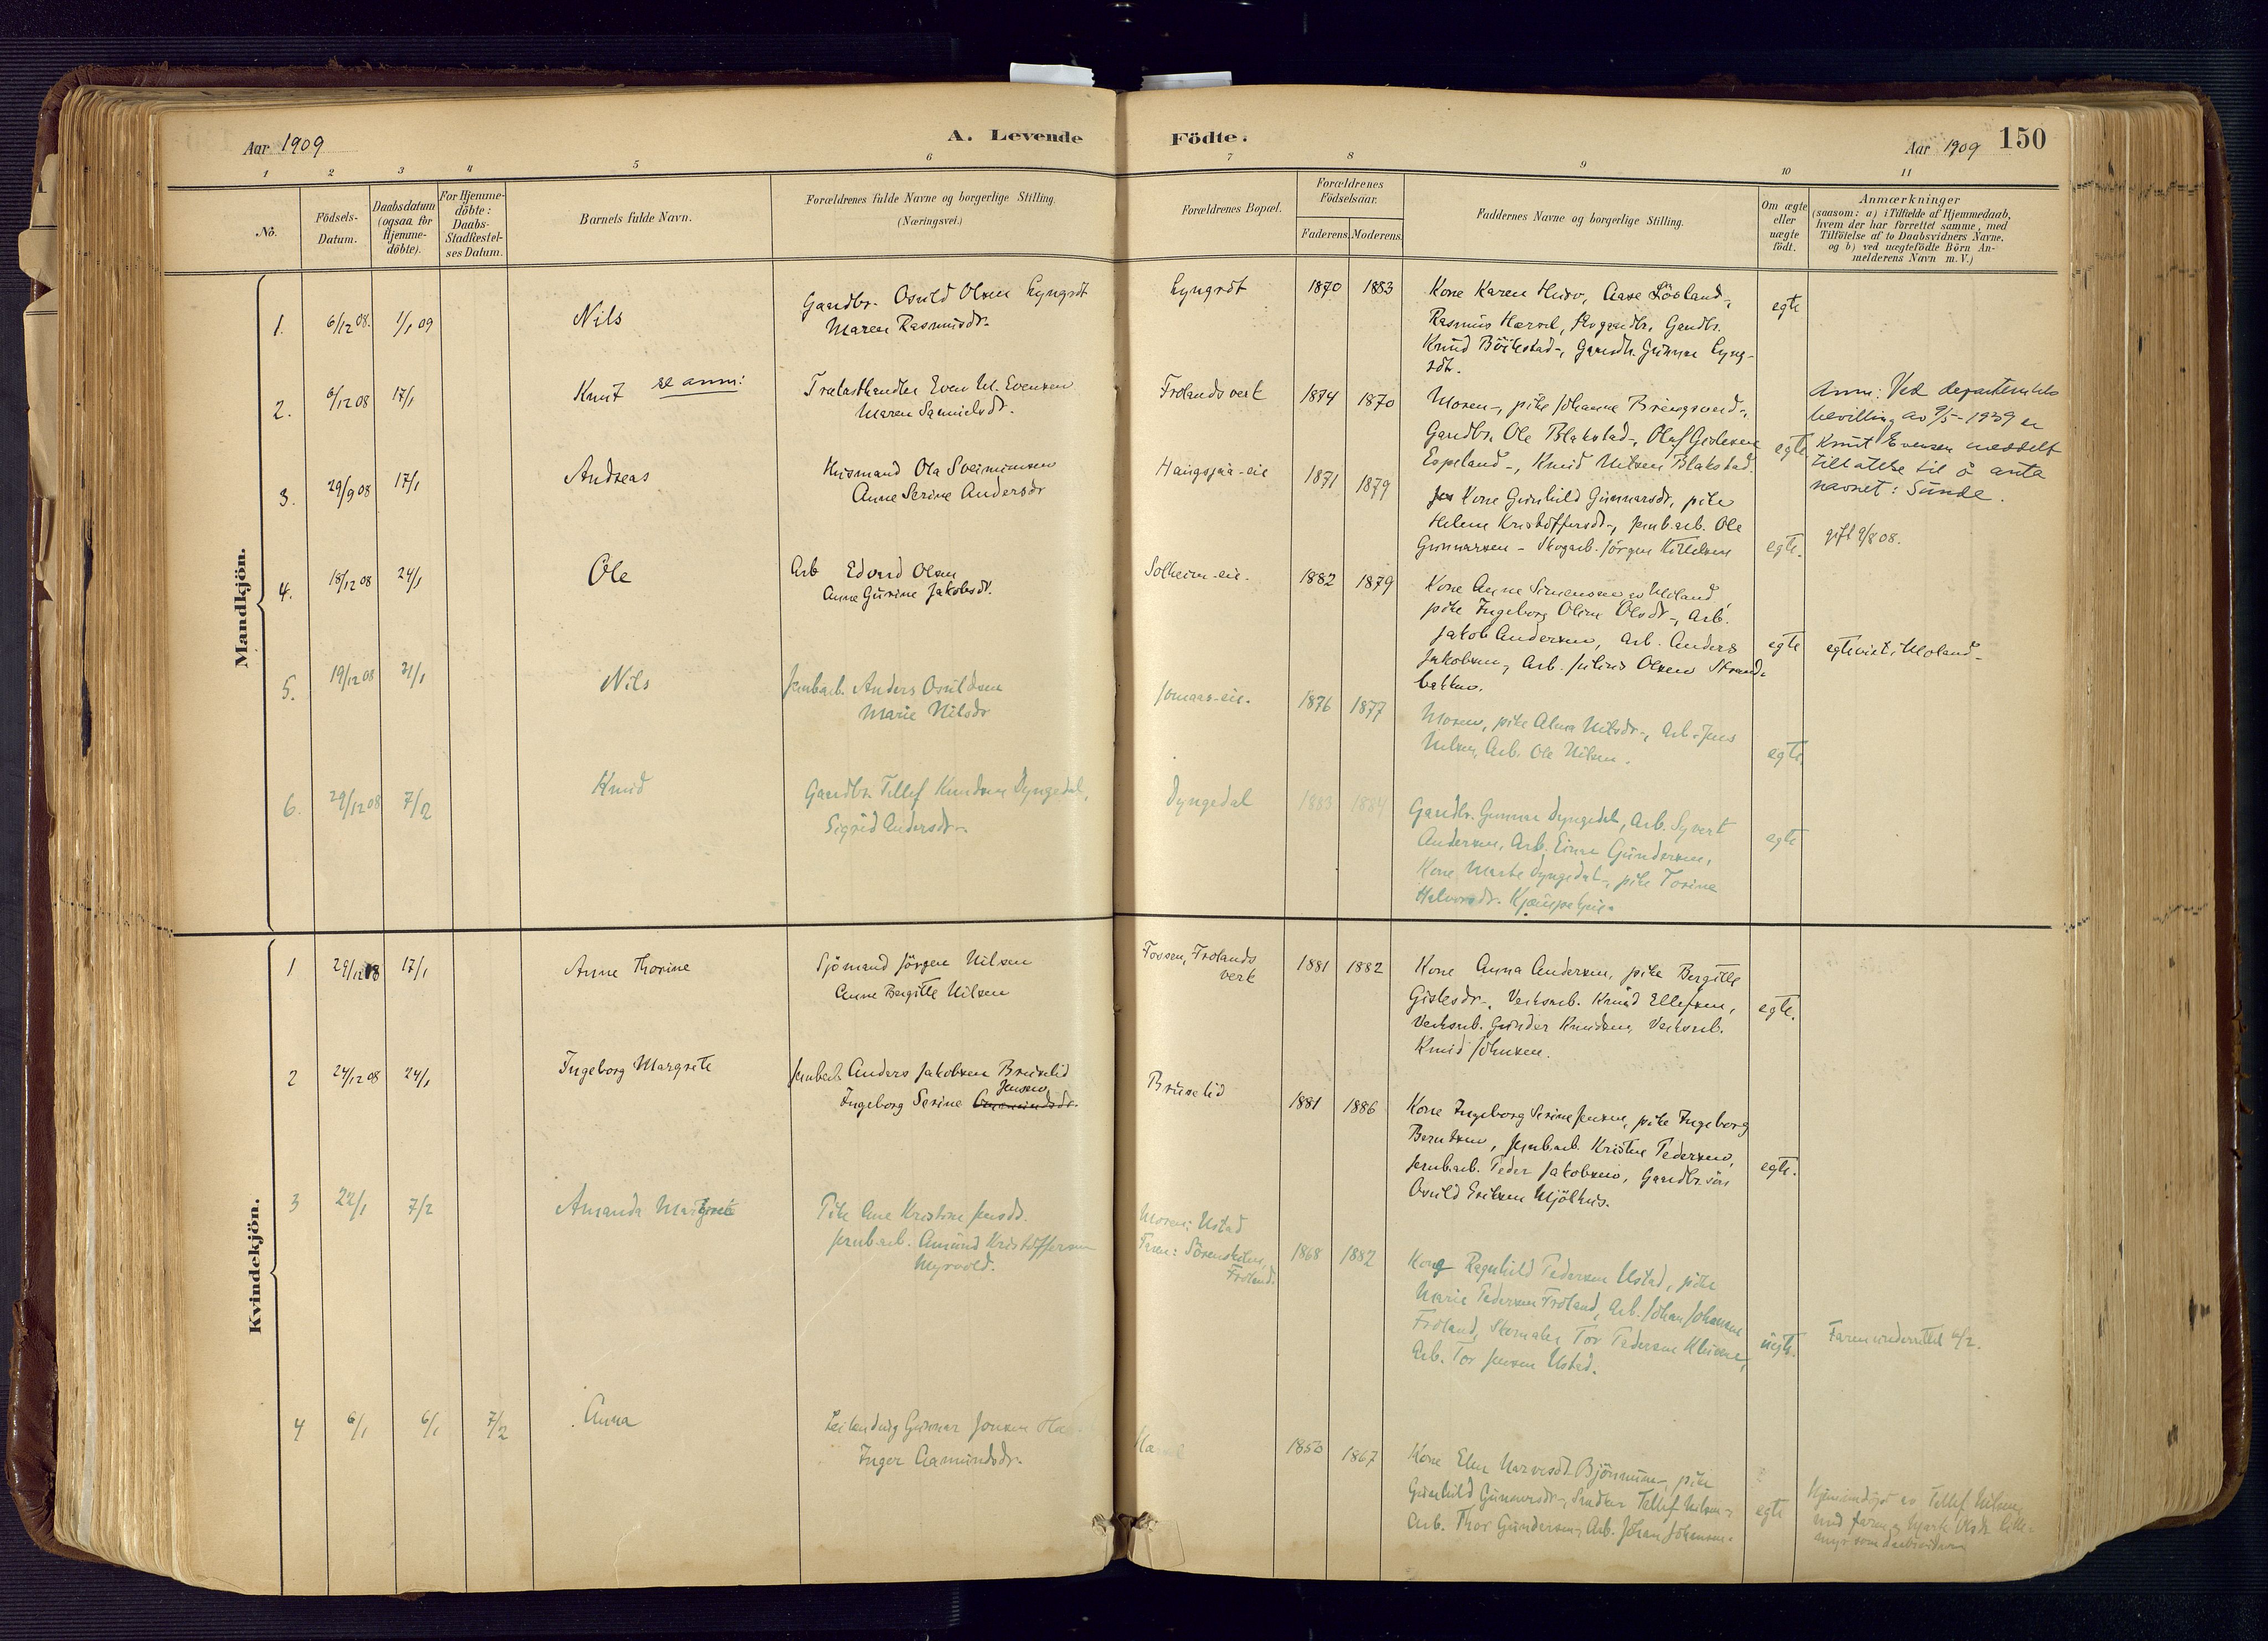 Aar 1909
A. Levende Födte.
Aar 1909 150
1 2 3 4 5 6 7 8 9 10 11
No.
Födsels-
Datum.
Daabsdatum
(ogsaa for
Hjemme-
döbte).
For Hjemme-
döbte:
Daabs-
Stadfæstel-
ses Datum.
Barnets fulde Navn.
Forældrenes fulde Navne og borgerlige Stilling
(Næringsvei.)
Forældrenes Bopæl.
Forældrenes
Födselsaar.
Faderens. Moderens.
Faddernes Navne og borgerlige Stilling.
Om ægte
eller
uægte
födt.
Anmærkninger
(saasom: a) i Tilfælde af Hjemmedaab,
hvem der har forrettet samme, med
Tilföielse af to Daabsvidners Navne,
og b) ved uægtefödte Börn An-
melderens Navn m. V.)
Mandkjön.
1. 6/12 08. 1/1 09 Nils
Gaardbr. Osuld Olsen Lyngrot
Maren Rasmusdr.
Lyngrot 1870 1883
Kone Karen, Aase Lövland,
Rasmus, Gaardbr.
Knud Böilestad, Gunnar Lyng-
rot.
egte
2. 6/12 08 17/1 Knut se anm:
Trælasthandler Even M. Evensen
Maren Samuelsdr.
Frolands verk 1874 1870
Moren, pike Johanne Bringsverd,
Gaardbr. Ole Blakstad, Olaf Gislesen
Espeland, Knud Nilsen Blakstad.
egte
Anm: Ved departementets
bevilling av 9/5-1939 er
Knut Evensen meddelt
tillatelse til å anta
navnet: Sunde.
3. 29/9 08 17/1 Andreas
Husmand Ola Sveinunsen
Anne Serine Andersdr
Haugsjaa-eie 1871 1879
Kone Gunhild Gunnarsdr, pike
Helene Kristoffersdr, jernb.arb. Ole
Gunnarsen - Skogarb. Jörgen Kittelsen
egte.
gift 9/8 08.
4. 18/12 08 24/1 Ole
Arb Edvard Olsen
Anne Gurine Jakobsdr.
Solheim-eie. 1882 1879
Kone Anne Simensen
pike Ingeborg Oline Olsdr, Arb.
Jakob Andersen, Arb. Anders
Jakobsen, Arb. Julius Olsen Strand-
bakken.
egte
egteviet i Moland
5. 19/12 08 31/1 Nils
Jernbarb. Anders Osuldsen
Marie Nilsdr
Jomaas-eie. 1876 1877
Moren, pike Alma Nilsdr, Arb. Jens
Nilsen, Arb. Ole Nilsen.
egte.
6. 29/12 08 7/2 Knud
Gaardbr. Tellef Knudsen Dyngedal,
Sigrid Andersdr.
Dyngedal 1883 1884
Gaardbr. Gunnar Dyngedal, Arb. Syvert
Andersen, Arb. Einar Gundersen,
Kone Marte Dyngedal, pike Torine
Halvorsdr.
egte
Kvindekjön.
1 29/12 08 17/1 Anne Thorine
Sjömand Jörgen Nilsen
Anne Bergitte Nilsen
Fossen, Frolands
verk
1881 1882
Kone Anna Andersen, pike Bergitte
Gislesdr, Verksarb. Knud Ellefsen,
Verksarb. Gunder Knudsen, Verksarb.
Knud Johnsen.
egte.
2 24/12 08 24/1 Ingeborg Margrete
Jernbarb. Anders Jakobsen Bruselid
Jensen
Ingeborg Serine Aamundsdr.
Bruselid 1881 1886
Kone Ingeborg Serine Jensen, pike Ingeborg
Berntsen, Jernb.arb. Kristen Pedersen,
Jernb.arb. Peder Jakobsen, Gaardbr.sön
Osuld Eriksen Mjölhus.
egte.
3 22/1 7/2 Amanda Margrete
Pike Ane Kristine Jensdr.
Jernb.arb. Amund Kristoffersen
Myrvold.
Moren: Ustad
Faren:
Froland.
1868 1882
Kone Ragnhild Pedersen Ustad, pike
Marie Pedersen Froland, Arb. Johan Johansen
Froland, Skomaker Tor Pedersen,
Arb. Tor Jensen Ustad.
uegte.
Faren underrettet 6/2.
4 6/1 6/1 7/2 Anna
Leilending Gunnar Jonsen
Inger Aamundsdr.
1853 1867
Kone Elen, pike
Gunhild Gunnarsdr, Snedker Tellef Nilsen,
Arb. Thor Gundersen, Arb. Johan Johansen.
egte
Hjemmedöpt av Tellef Nilsen
med faren og
som daabsvidner